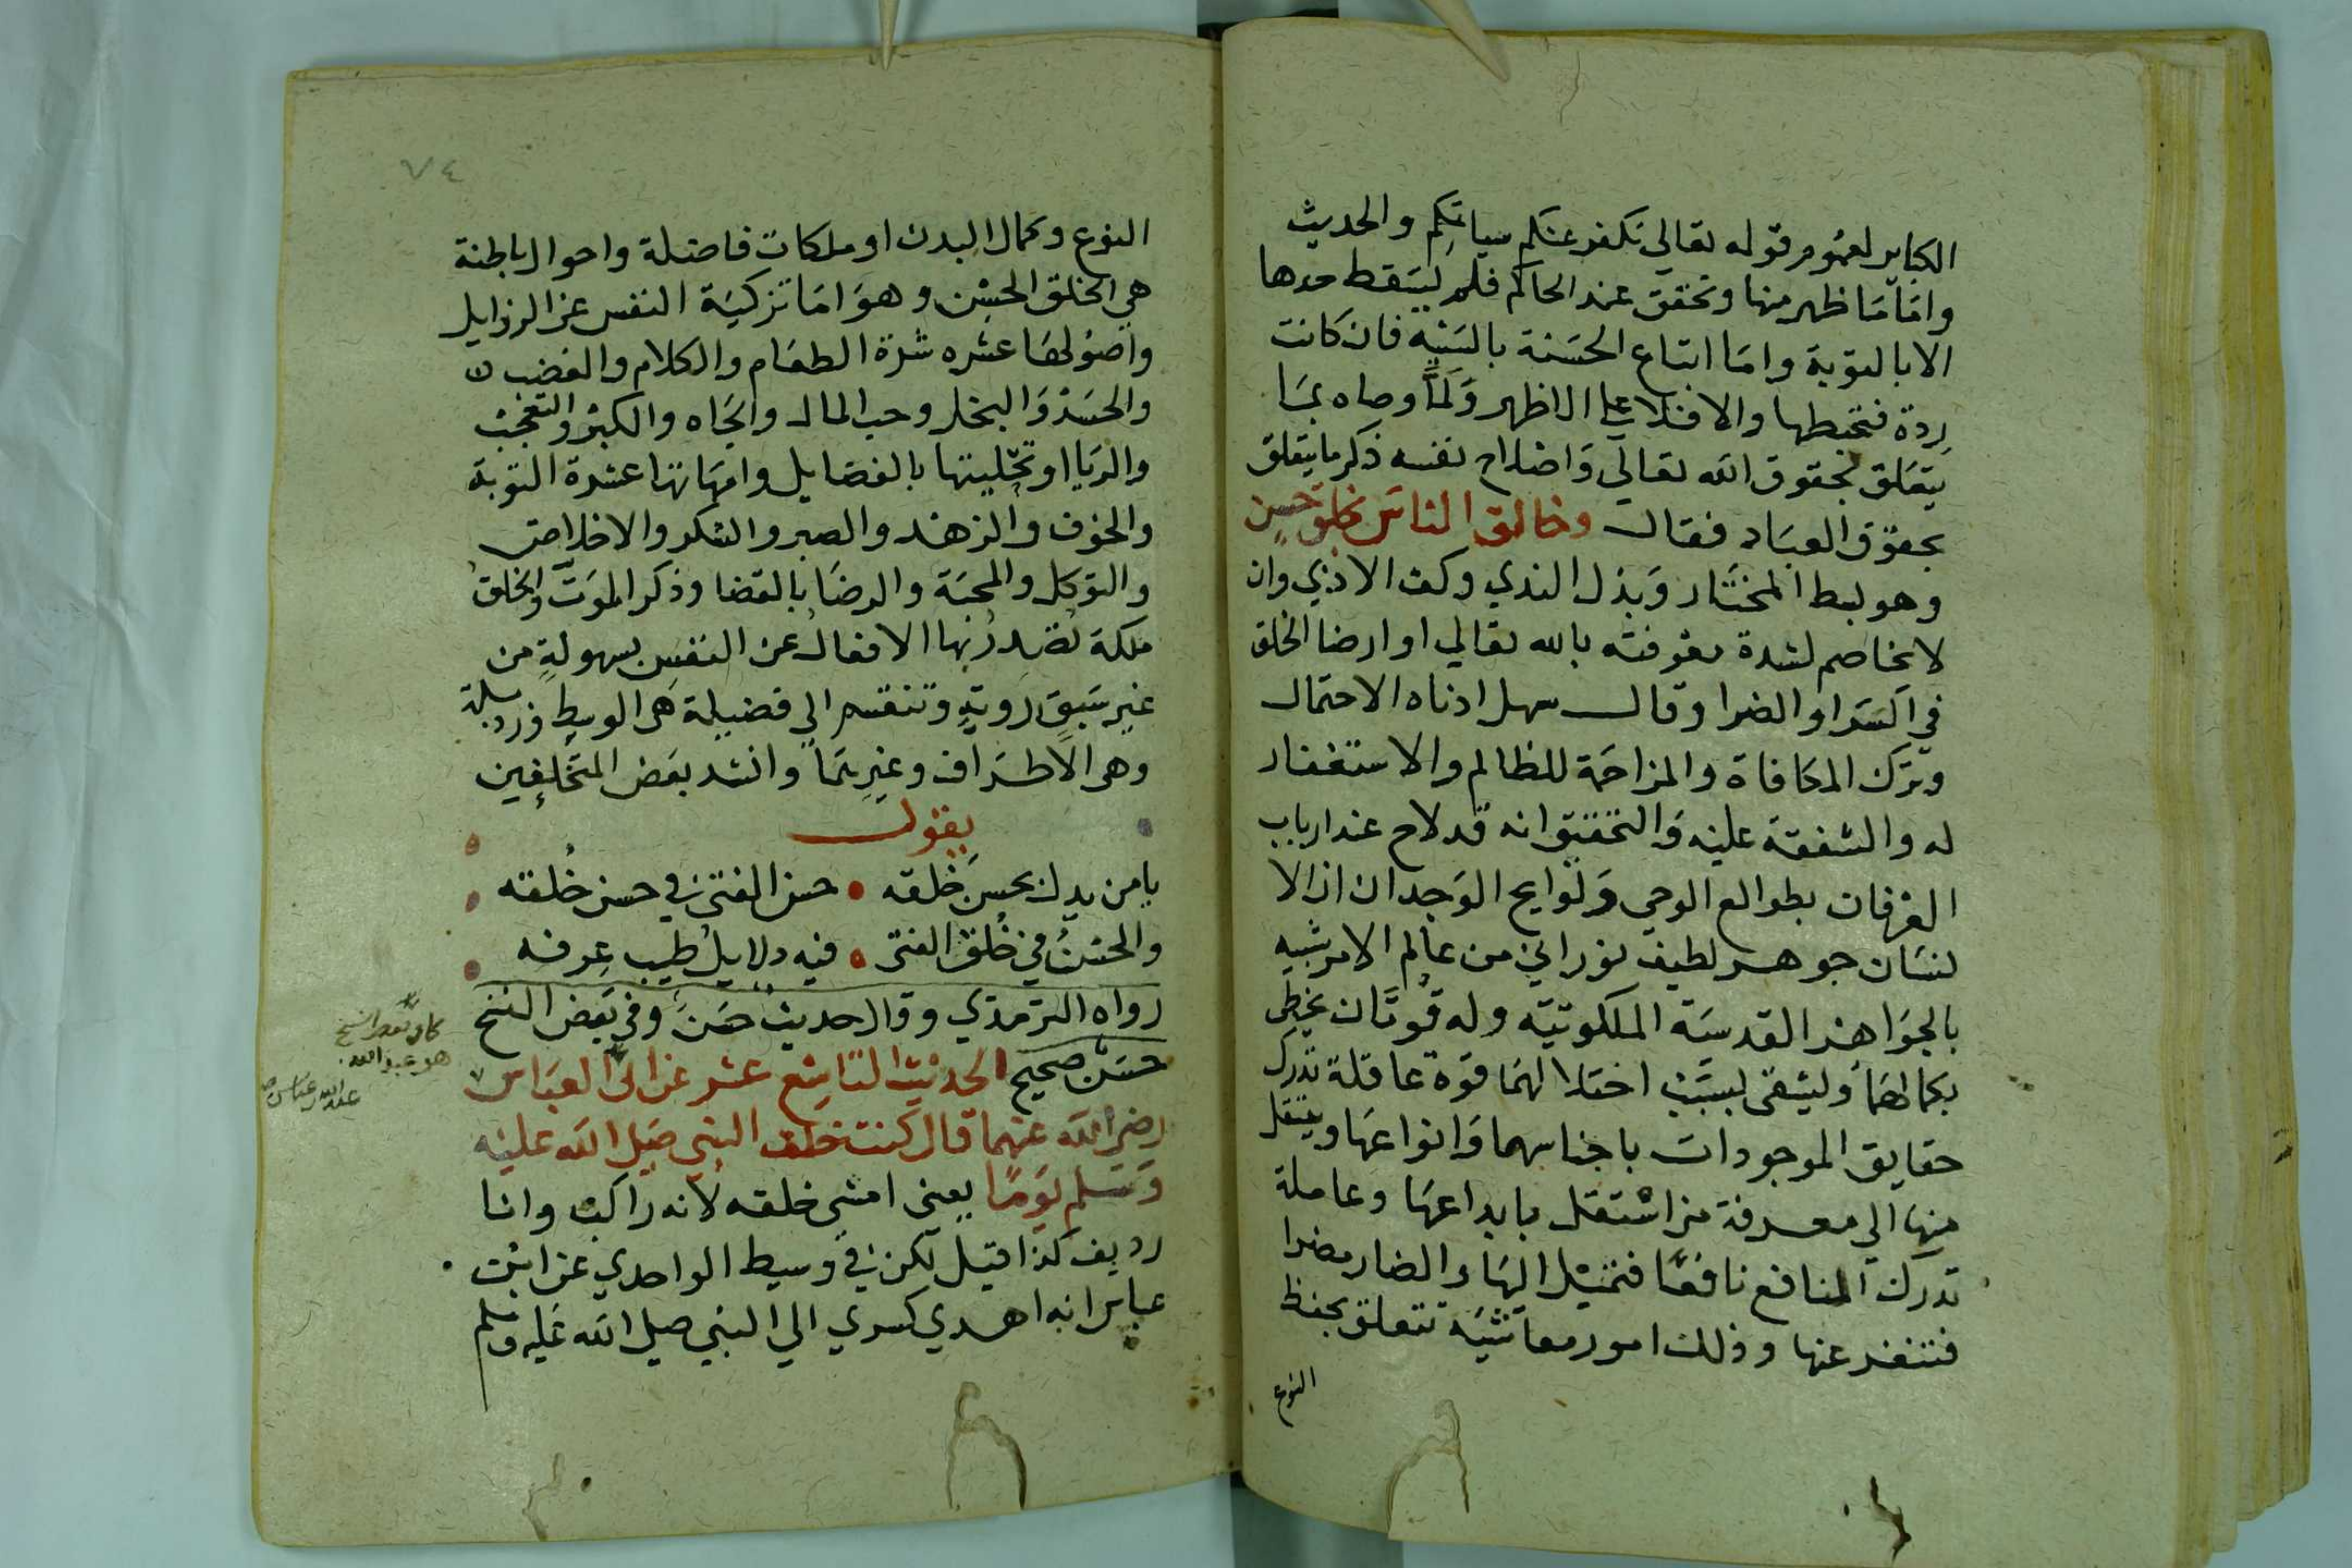 الكباير لعموم قوله تعالي نكفر عنكم سياتكم والحديث
واما ما ظهر منها وتحقق عند الحاكم فلم يسقط حدها
الا بالتوبة واما اتباع الحسنة بالسيئة فان كانت
ردة فتحبطها والا فلا علي الاظهر ولما وصاه بما
يتعلق بحقوق الله تعالي واصلاح نفسه ذكر ما يتعلق
بحقوق العباد فقال وخالق الناس بخلق حسن
وهو بسط المختار وبذل الندي وكف الاذي وان
لا يخاصم لشدة معرفته بالله تعالي او ارضا الخلق
في السرا والضرا وقال سهل ادناه الاحتمال
وترك المكافاة والمزاحمة للظالم والاستغفار
له والشفقة عليه والتحقيق انه قد لاح عند ارباب
العرفان بطوالع الوحي ولوايح الوجدان ان الا
نسان جوهر لطيف نوراني من عالم الامر شبيه
بالجواهر القدسية الملكوتية وله قوتان يحظي
بكمالهما وليشقي بسبب اختلالهما قوة عاقلة تدرك
حقايق الموجودات باجناسهما وانواعها وينتقل
منها الي معرفة من اشتغل بابداعها وعاملة
تدرك المنافع نافعا فتميل اليها والضار مضرا
فتنفر عنها وذلك امور معاشية تتعلق بحفظ
النوع
٧٤
النوع وكمال البدن او ملكات فاضلة واحوال باطنة
هي الخلق الحسن وهو اما تزكية النفس عن الرذايل
واصولها عشره شرة الطعام والكلام والغضب
والحسد والبخل وحب المال والجاه والكبر والتعجب
والريا او تحليتها بالفضايل وامهاتها عشرة التوبة
والخوف والزهد والصبر والشكر والاخلاص
والتوكل والمحبة والرضا بالقضا وذكر الموت والخلق
ملكة تصدر بها الافعال عن النفس بسهولة من
غير سبق روية وتنقسم الي فضيلة هي الوسط ورذيلة
وهي الاطراف وغيرهما وانشد بعض المتخلفين
يقول
يا من يدل بحسن خلقه • حسن الفتى في حسن خلقته
والحسن في خلق الفتى • فيه دلايل طيب عرفه
رواه الترمذي وقال حديث حسن وفي بعض النسخ
حسن صحيح الحديث التاسع عشر عن ابي العباس
رضي الله عنهما قال كنت خلف النبي صلي الله عليه
وسلم يوما يعني امشي خلفه لانه راكب وانا
رديف كذا قيل لكن في وسيط الواحدي عن ابن
عباس انه اهدي كسري الي النبي صلي الله عليه وسلم
هو عبد الله